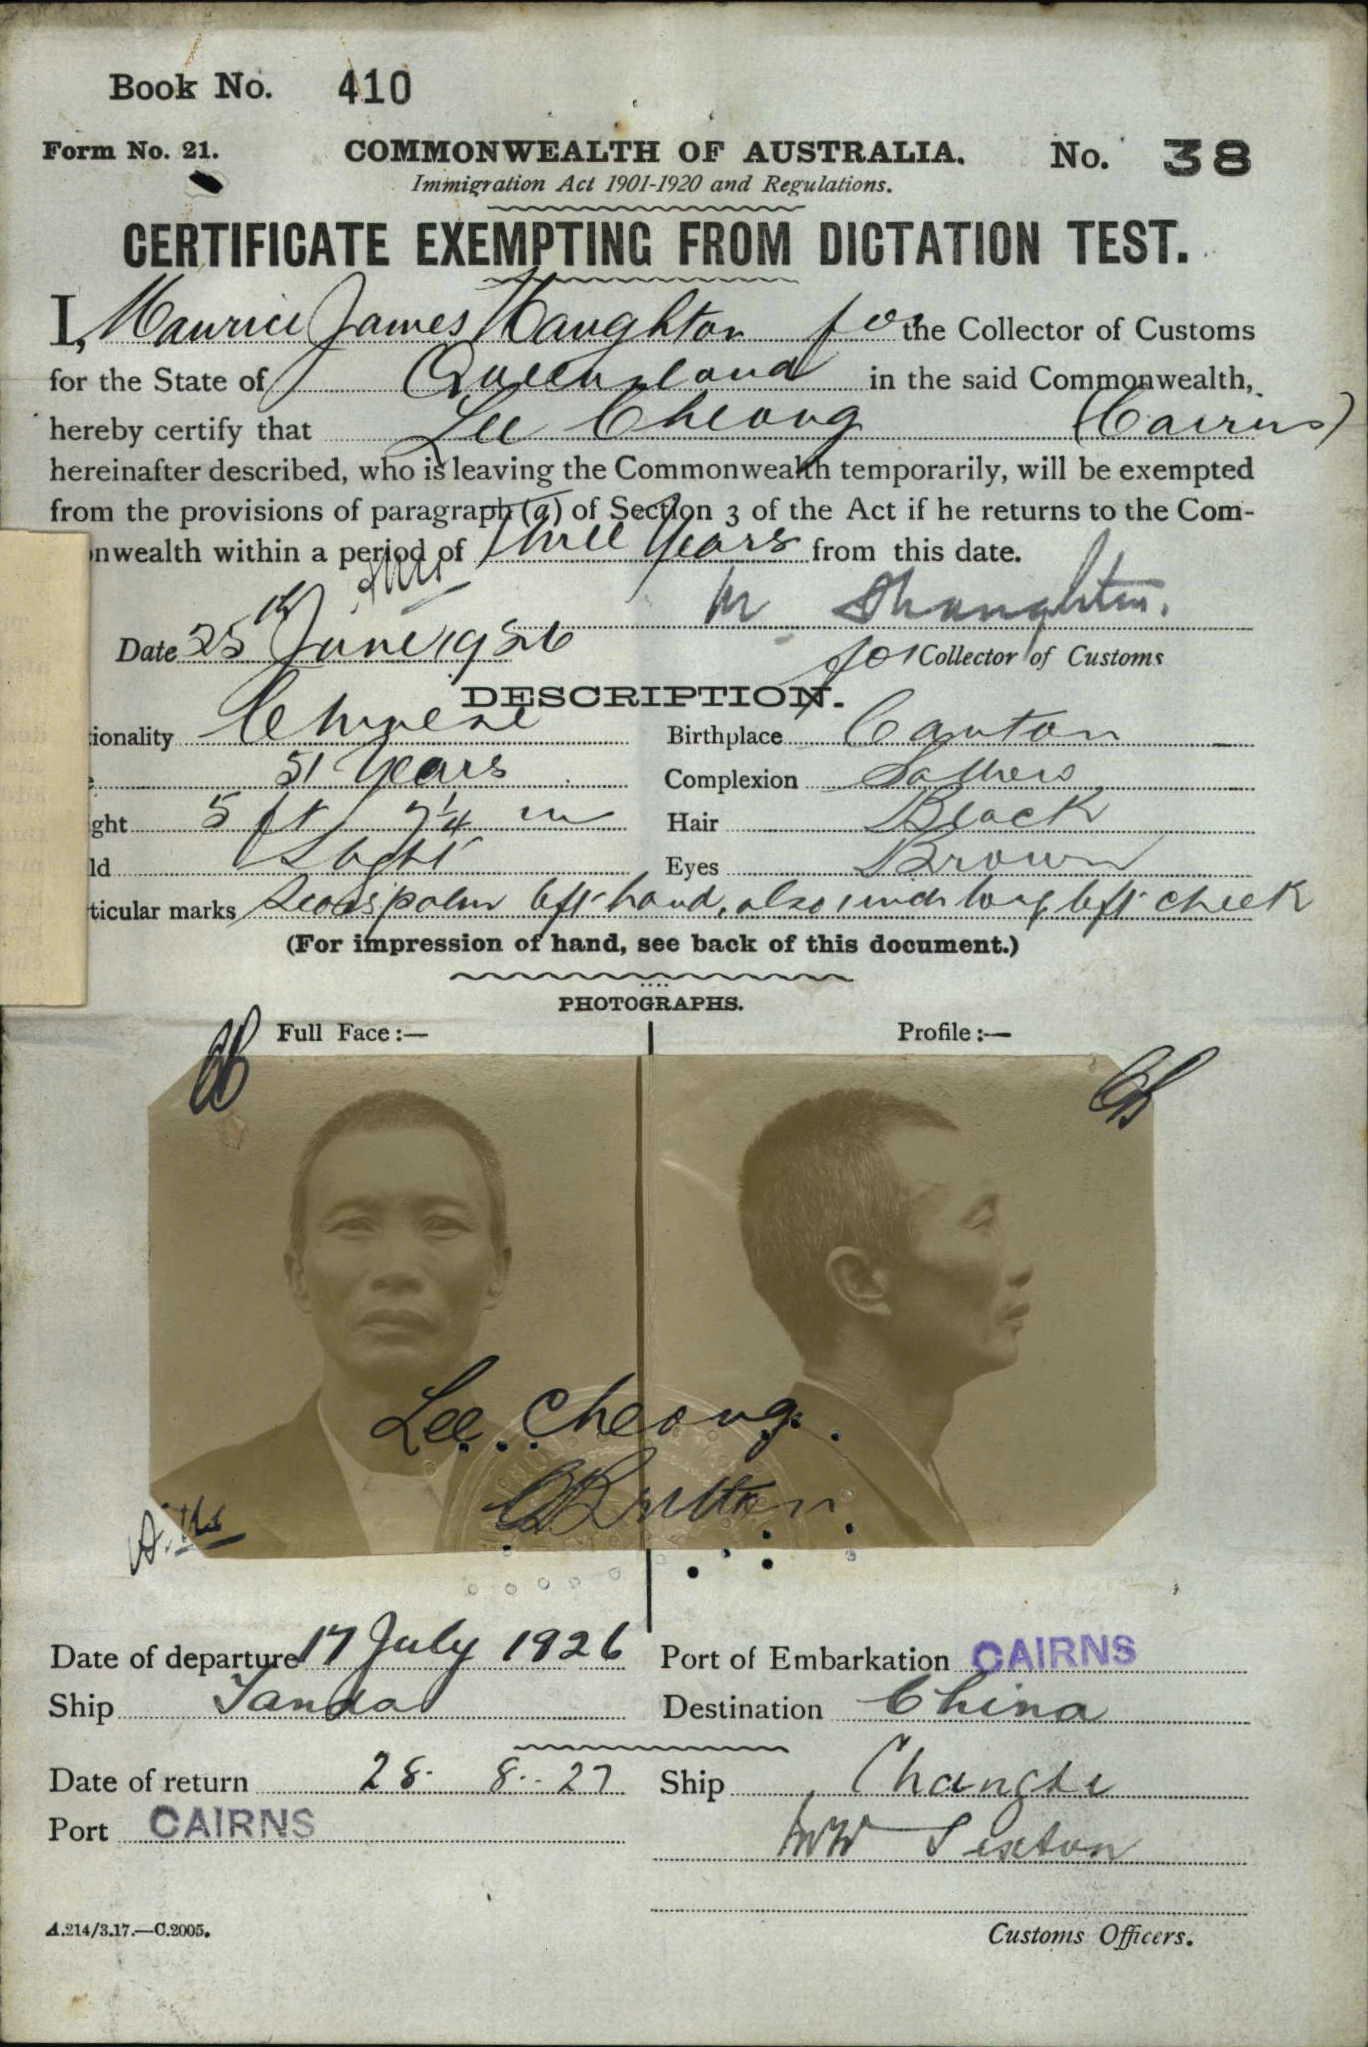 Book No. 410
Form No. 21. COMMONWEALTH OF AUSTRALIA. No. 38
Immigration Act 1901-1920 and Regulations.
CERTIFICATE EXEMPTING FROM DICTATION TEST.
I, Maurice James Haughton for the Collector of Customs
for the State of Queensland in the said Commonwealth,
hereby certify that Lee Cheong (Cairns)
hereinafter described, who is leaving the Commonwealth temporarily, will be exempted
from the provisions of paragraph (a) of Section 3 of the Act if he returns to the Com-
onwealth within a period of three years from this date.
M Haughton.
Date 25th June 1926 for Collector of Customs
DESCRIPTION.
ionality Chinese Birthplace Canton
51 Years Complexion Sallow
ght 5 ft 7 1/4 in Hair Black
ld Slight Eyes Brown
ticular marks Scars palm left hand, also under left cheek
(For impression of hand, see back of this document.)
PHOTOGRAPHS.
Full Face :— Profile :—
Lee Cheong
Date of departure 17 July 1926 Port of Embarkation CAIRNS
Ship Tanda Destination China
Date of return 28. 8.. 27 Ship Changte
Port CAIRNS Sexton
A.214/3.17.—C.2005. Customs Officers.